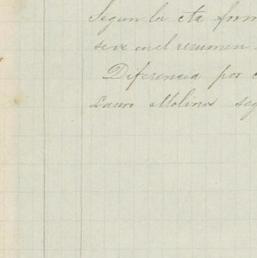 Segun la cta form
se ve en el resumen
Diferencia por
Lauro Molina seg